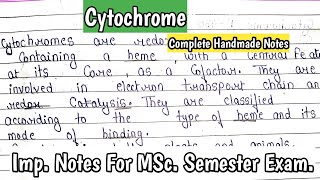 Cytochrome
Cytochromes are redo
Complete Handmade Notes
Containing a heme, with a Central Fe at
at its Core, as a Cofactor. They are
involved in electron transport chain an
redox Catalysis. They are classified
according to the type of heme and its
mode of binding.
plants and animals
Imp. Notes For MSc. Semester Exam.